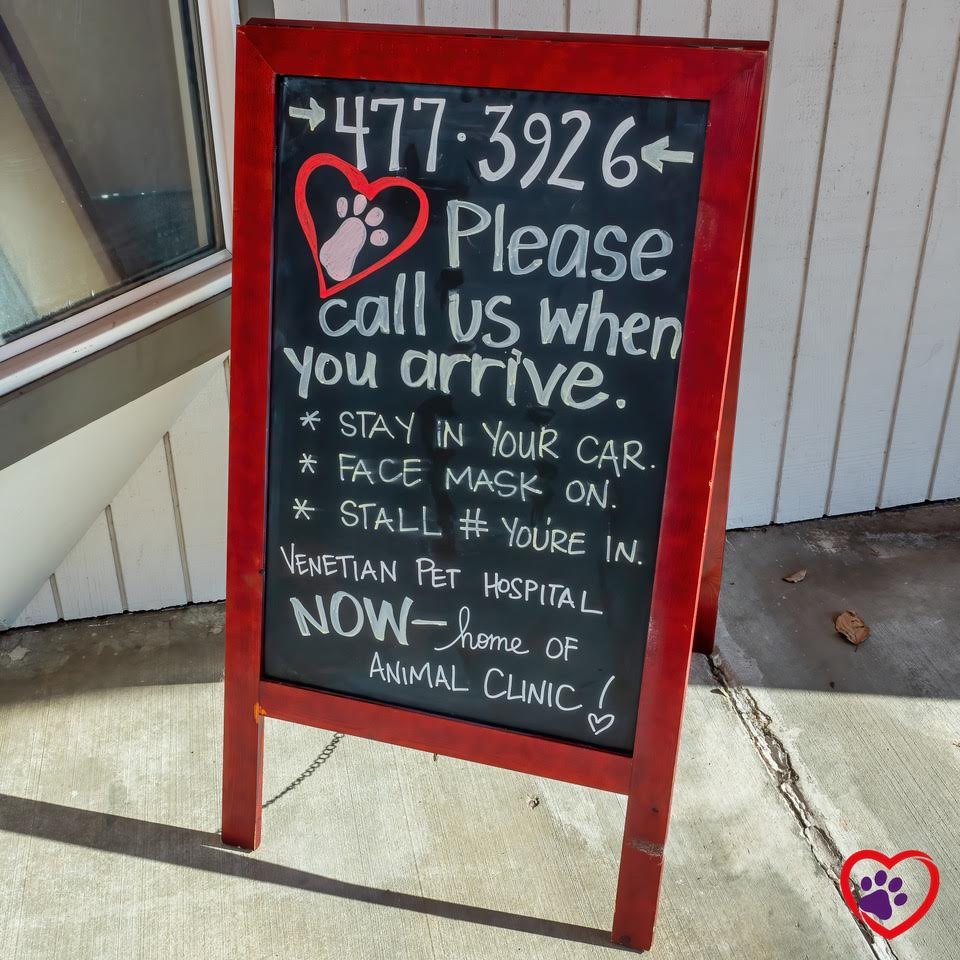 → 477·3926 ←
Please
call us when
you arrive.
* STAY IN YOUR CAR.
* FACE MASK ON.
* STALL # YOU'RE IN.
VENETIAN PET HOSPITAL
NOW— home OF
ANIMAL CLINIC!